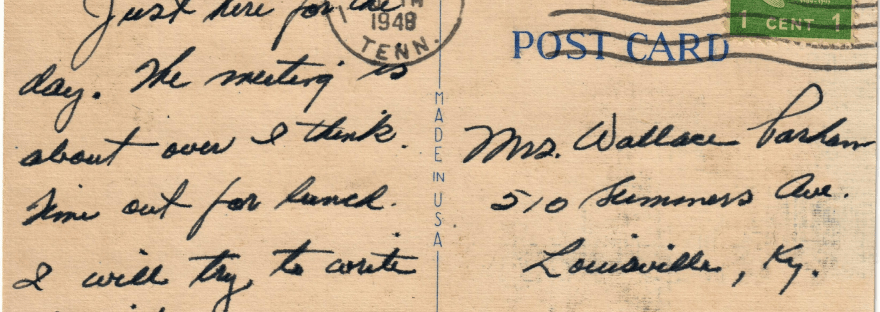 Just here for the
day. The meeting is
about over I think.
Time out for lunch.
I will try to write
1948
TENN.
MADE IN USA
POST CARD
1 CENT 1
Mrs. Wallace Parham
510 Summers Ave.
Louisville, Ky.